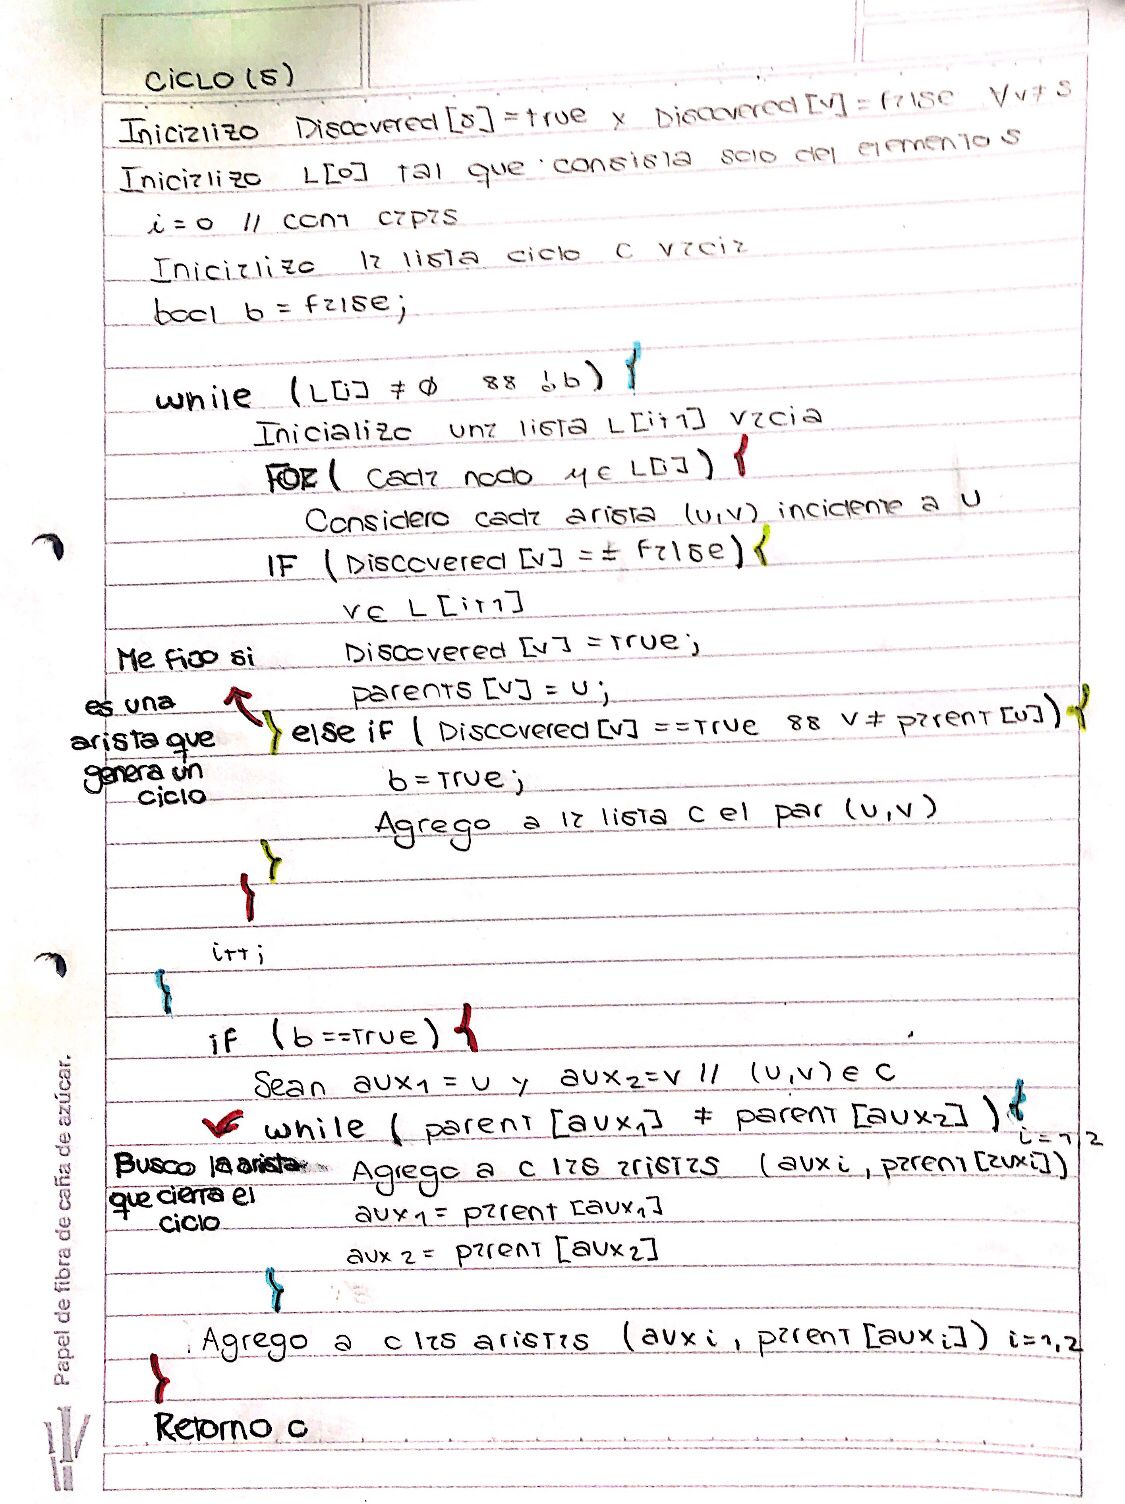 CICLO (s)
Inicializo Discovered [s] = true y Discovered [v] = false ∀v ≠ s
Inicializo L[0] tal que consista solo del elemento s
i = 0 // cont capas
Inicializo la lista ciclo C vacia
bool b = false;
while (L[i] ≠ ∅ && !b) {
Inicializo una lista L[i+1] vacia
FOR ( Cada nodo u ∈ L[i] ) {
Considero cada arista (u,v) incidente a u
IF ( Discovered [v] == false) {
v ∈ L [i+1]
Discovered [v] = true;
parents [v] = u;
} else if ( Discovered [v] == true && v ≠ parent [u]) {
Me fijo si
es una
arista que
genera un
ciclo
b = true;
Agrego a la lista C el par (u,v)
}
}
i++;
}
if (b == true) {
Sean aux1 = u y aux2 = v // (u,v) ∈ C
while ( parent [aux1] ≠ parent [aux2] ) {
Busco la arista
que cierra el
ciclo
Agrego a C las aristas (aux i, parent [aux i]) i = 1,2
aux1 = parent [aux1]
aux 2 = parent [aux2]
}
Agrego a C las aristas (aux i, parent [aux i]) i=1,2
}
Retorno C
Papel de fibra de caña de azúcar.